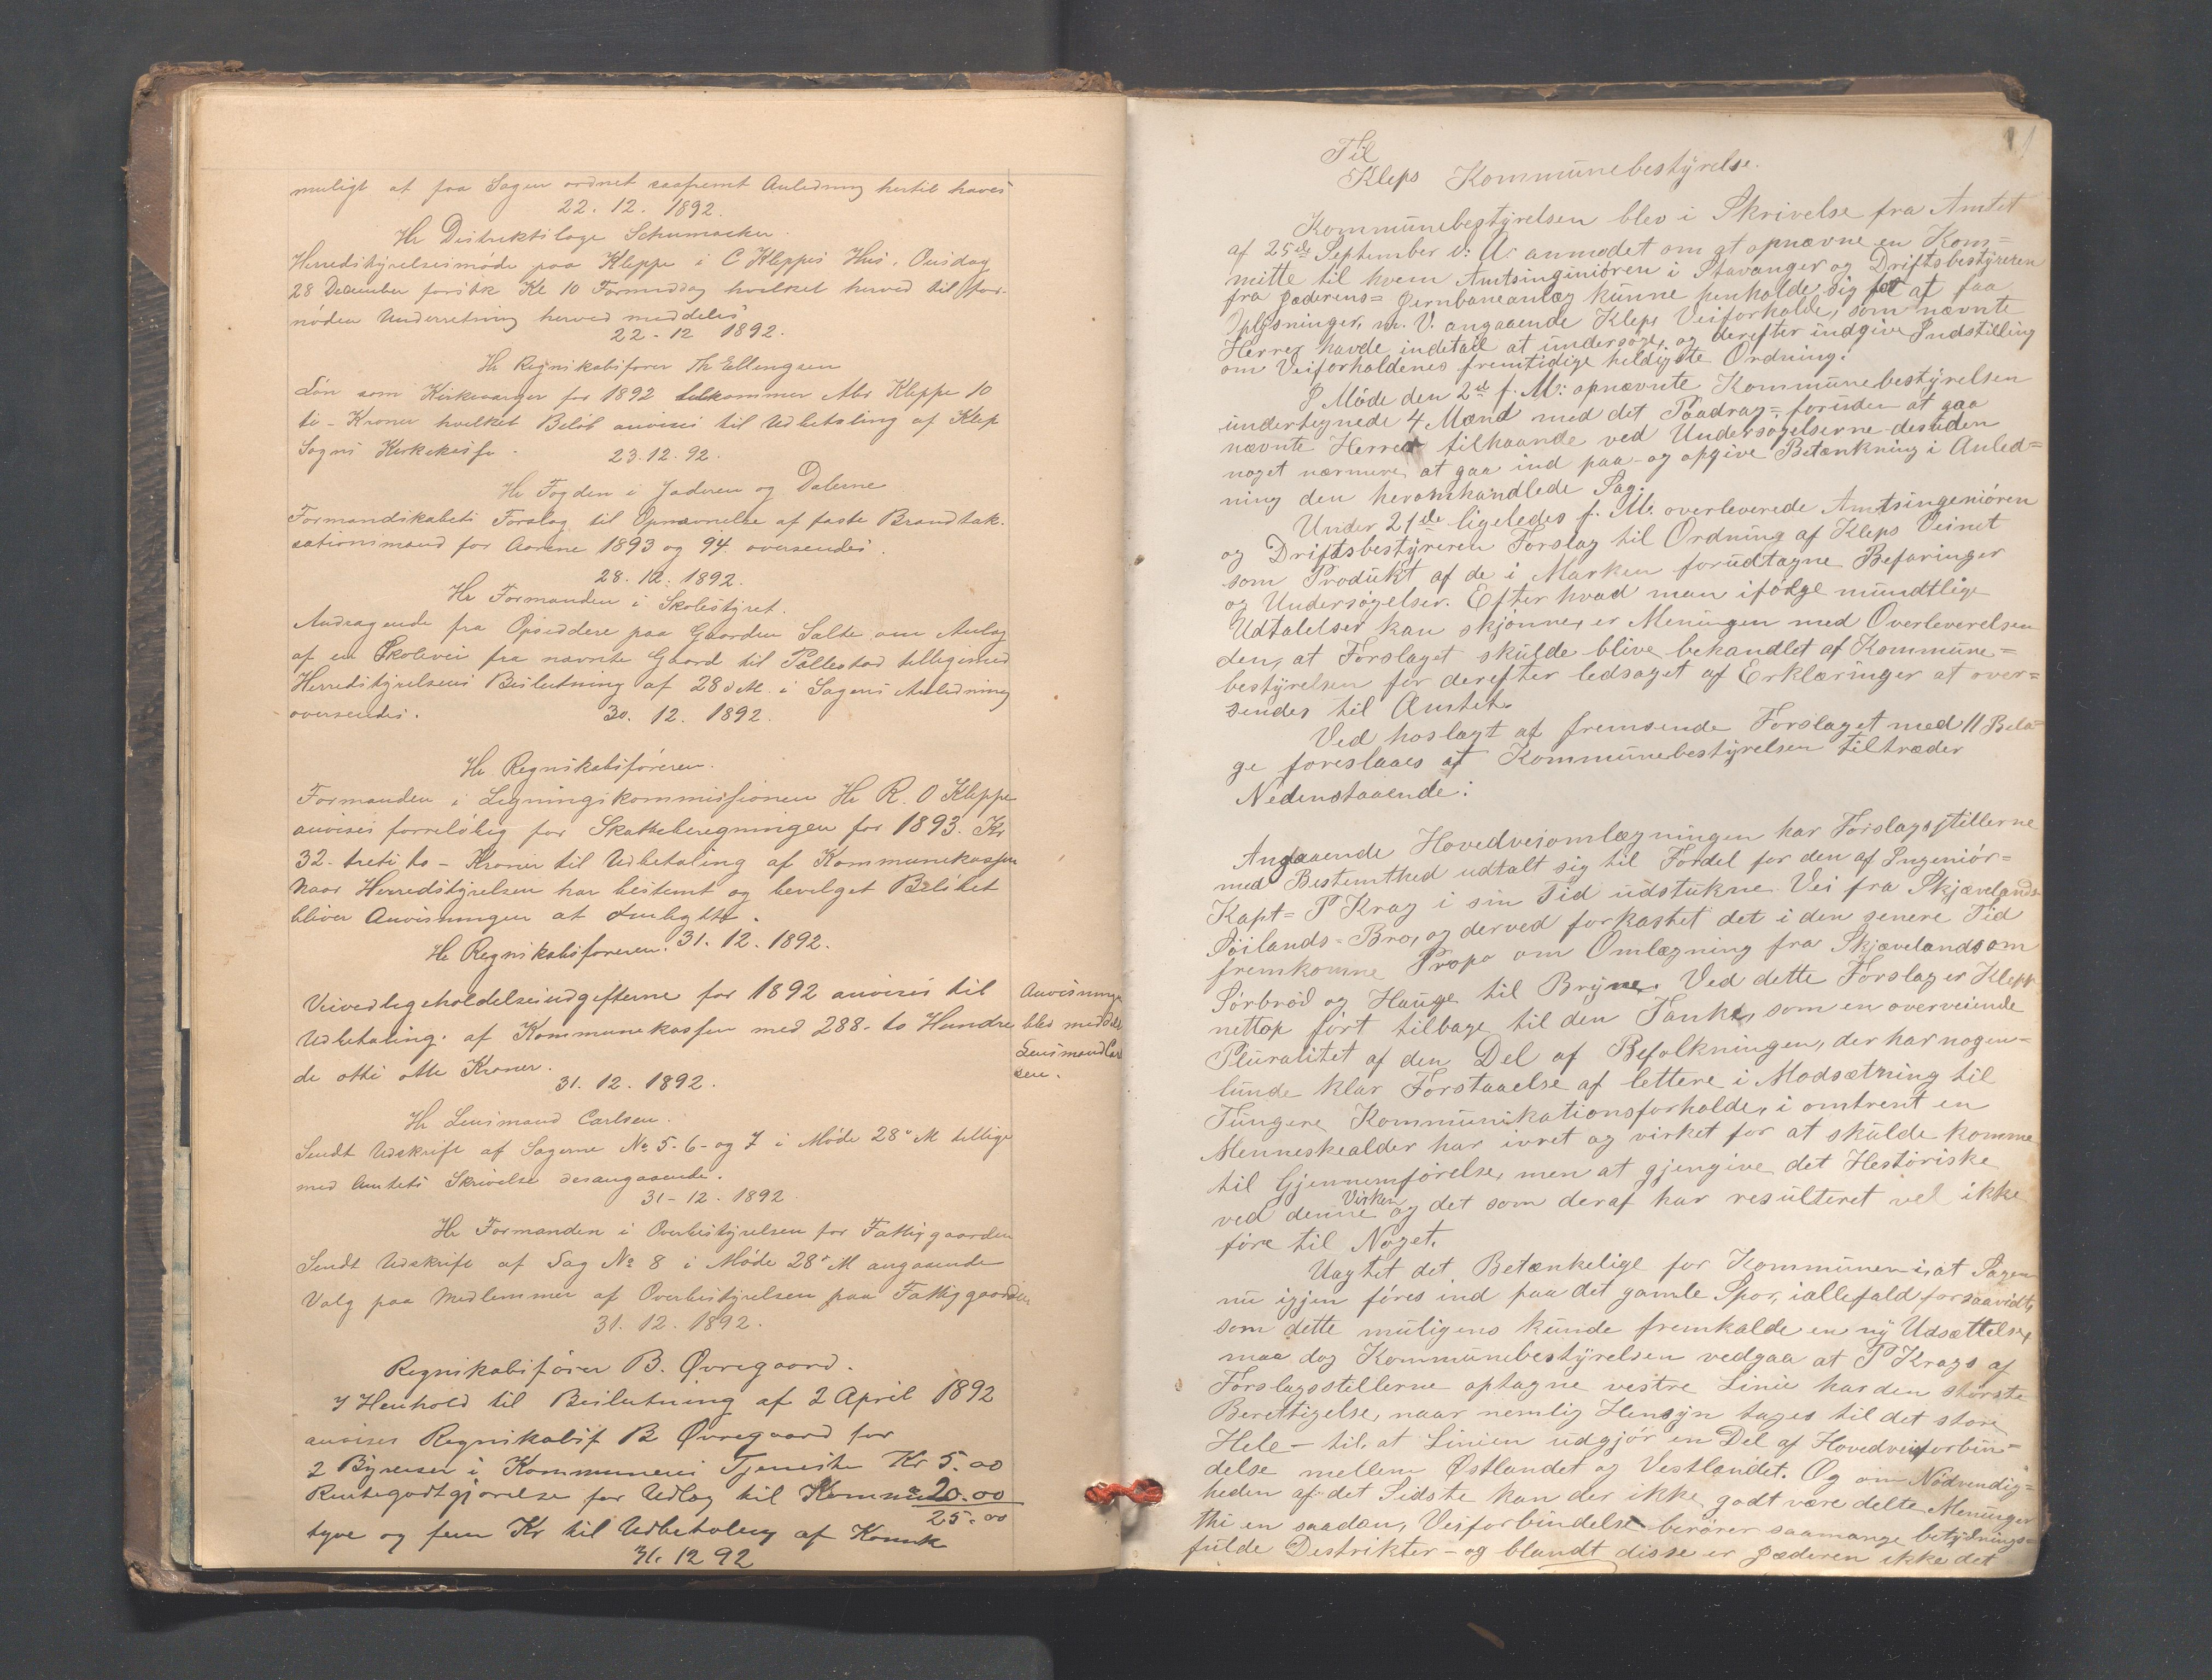 muligt at faa Sagen ordnet saafremt Anledning hertil haves
22. 12. 1892.
Hr Distriktslæge Schumacher.
Herredstyrelsesmøde paa Kleppe i C Kleppes Hus, Onsdag
28 December førstk Kl 10 Formiddag hvilket herved til for-
nøden Underretning herved meddeles
22 - 12 1892.
Hr Regnskabsfører Th Ellingsen
Løn som Kirkeværger for 1892 tilkommer Abr Kleppe 10
ti - Kroner hvilket Beløb anvises til Udbetaling af Klep
Sogns Kirkekasse.
23. 12. 92.
Hr Fogden i Jæderen og Dalerne
Formandskabets Forslag til Opnævnelse af faste Brandtak-
sationsmænd for Aarene 1893 og 94 oversendes.
28. 12. 1892.
Hr Formanden i Skolestyret.
Andragende fra Opsiddere paa Gaarden Salte om Anlæg
af en Skolevei fra nævnte Gaard til Pollestad tilligemed
Herredstyrelsens Beslutning af 28 d M. i Sagens Anledning
oversendes.
30. 12. 1892.
Hr Regnskabsføreren.
Formanden i Ligningskommissionen Hr R. O Kleppe
anvises forreløbig for Skatteberegningen for 1893. Kr
32 - treti to - Kroner til Udbetaling af Kommunekassen
Naar Herredstyrelsen har bestemt og bevilget Beløbet
bliver Anvisningen at ombytte.
31. 12. 1892.
Hr Regnskabsføreren.
Veivedligeholdelsesudgifterne for 1892 anvises til
Udbetaling af Kommunekassen med 288 - to Hundre
de otti otte Kroner.
31. 12. 1892.
Anvisningen
blev meddelt
Lensmand Carl
sen.
Hr Lensmand Carlsen.
Sendt Udskrift af Sagerne No 5 - 6 - og 7 i Møde 28 d M tillige
med Amtets Skrivelse desangaaende.
31 - 12 - 1892
Hr Formanden i Overbestyrelsen for Fattiggaarden
Sendt Udskrift af Sag No 8 i Møde 28 d M angaaende
Valg paa Medlemmer af Overbestyrelsen paa Fattiggaarden
31. 12. 1892.
Regnskabsfører B. Øvregaard.
I Henhold til Beslutning af 2 April 1892
anvises Regnskabsf B Øvregaard for
2 Byreiser i Kommunens Tjeneste Kr 5.00
Rentegodtgjørelse for Udlæg til Kommunen 20.00
25.00
tyve og fem Kr til Udbetaling af Komk
31. 12 92
Til
Kleps Kommunebestyrelse.
Kommunebestyrelsen blev i Skrivelse fra Amtet
af 25de September d: A: anmodet om at opnævne en Kom=
mitte til hvem Amtsinginiøren i Stavanger og Driftsbestyreren
fra Jæderens= Jernbaneanlæg kunne henholde sig for at faa
Oplysninger, m. V. angaaende Kleps Veiforholde, som nævnte
Herrer havde indetail at undersøge, og derefter indgive Indstilling
om Veiforholdenes fremtidige heldigste Ordning.
I Møde den 2den f. M: opnævnte Kommunebestyrelsen
undertegnede 4 Mænd med det Paadrag= foruden at gaa
nævnte Herrer tilhaande ved Undersøgelserne desuden
noget nærmere at gaa ind paa og opgive Betænkning i Anled=
ning den heromhandlede Sag.
Under 21de ligeledes f. M. overleverede Amtsingeniøren
og Driftsbestyreren Forslag til Ordning af Kleps Veinet
som Produkt af de i Marken forudtagne Befaringer
og Undersøgelser. Efter hvad man ifølge mundtlige
Udtalelser kan skjønne, er Meningen med Overleverelsen
den, at Forslaget skulde blive behandlet af Kommune=
bestyrelsen for derefter ledsaget af Erklæringer at over=
sendes til Amtet.
Ved hoslagt at fremsende Forslaget med 11 Bila=
ge foreslaaes at Kommunebestyrelsen tiltræder
Nedenstaaende:
Angaaende Hovedveiomlægningen har Forslagsstillerne
med Bestemthed udtalt sig til Fordel for den af Ingeniør=
Kapt= P Krag i sin Tid udstukne Vei fra Skjævelands=
Søilands= Bro, og derved forkastet det i den senere Tid
fremkomne Propo om Omlægning fra Skjæveland som
Sørbrød og Hauge til Bryne. Ved dette Forslag er Klepp
nettop ført tilbage til den Tanke, som en overveiende
Pluralitet af den Del af Befolkningen, der har nogen=
lunde klar Forstaaelse af lettere i Modsætning til
Tungere Kommunikationsforholde, i omtrent en
Menneskealder har ivret og virket for at skulde komme
til Gjennemførelse, men at gjengive det Historiske
ved denne Virken og det som deraf har resulteret vel ikke
føre til Noget.
Uagtet det Betænkelige for Kommunen i, at Sagen
nu igjen føres ind paa det gamle Spor, iallefald forsaavidt,
som dette muligens kunde fremkalde en ny Udsættelse,
maa dog Kommunebestyrelsen vedgaa at P Krags af
Forslagsstillerne optagne vestre Linie har den største
Berettigelse, naar nemlig Hensyn tages til det store
Hele - til, at Linien udgjør en Del af Hovedveiforbin=
delse mellem Østlandet og Vestlandet. Og om Nødvendig=
heden af det Sidste kan der ikke godt være delte Meninger
thi en saadan, Veiforbindelse berører saamange betydnings=
fulde Destrikter - og blandt disse er Jæderen ikke det